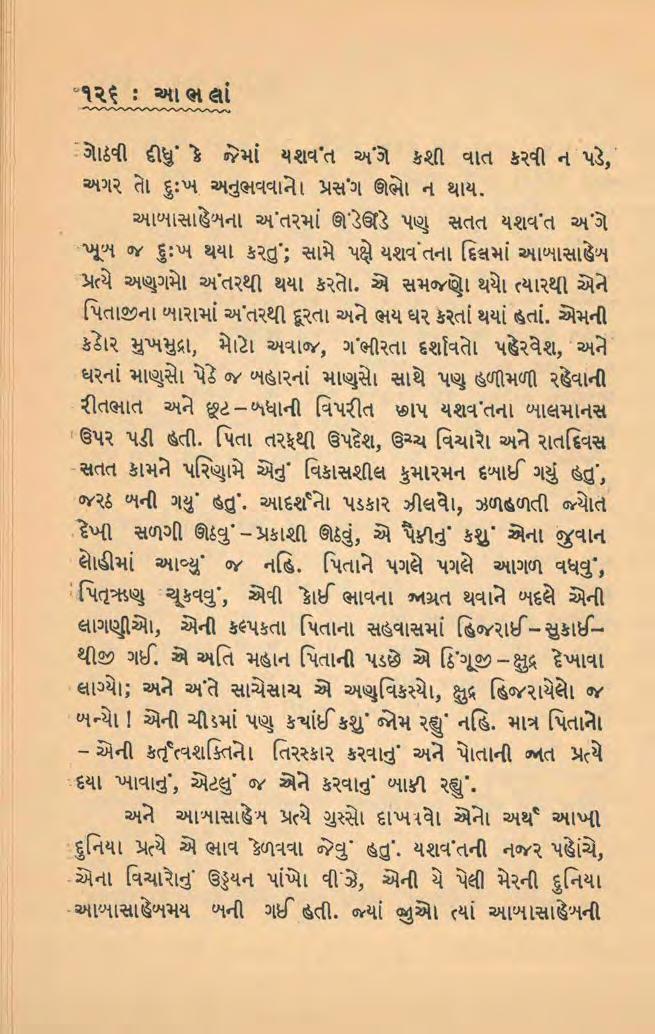 ૧૨૬ : આભલાં
ગોઠવી દીધું કે જેમાં યશવંત અંગે કશી વાત કરવી ન પડે,
અગર તો દુઃખ અનુભવવાનો પ્રસંગ ઊભો ન થાય.
આબાસાહેબના અંતરમાં ઊંડેઊંડે પણ સતત યશવંત અંગે
ખૂબ જ દુઃખ થયા કરતું; સામે પક્ષે યશવંતના દિલમાં આબાસાહેબ
પ્રત્યે અણગમો અંતરથી થયા કરતો. એ સમજણો થયો ત્યારથી એને
પિતાજીના બારામાં અંતરથી દૂરતા અને ભય ઘર કરતાં થયાં હતાં. એમની
કઠોર મુખમુદ્રા, મોટો અવાજ, ગંભીરતા દર્શાવતો પહેરવેશ, અને
ઘરનાં માણસો પેઠે જ બહારનાં માણસો સાથે પણ હળીમળી રહેવાની
રીતભાત અને છૂટ – બધાની વિપરીત છાપ યશવંતના બાલમાનસ
ઉપર પડી હતી. પિતા તરફથી ઉપદેશ, ઉચ્ચ વિચારો અને રાતદિવસ
સતત કામને પરિણામે એનું વિકાસશીલ કુમારમન દબાઈ ગયું હતું,
જરઠ બની ગયું હતું. આદર્શનો પડકાર ઝીલવો, ઝળહળતી જ્યોત
દેખી સળગી ઊઠવું – પ્રકાશી ઊઠવું, એ પૈકીનું કશું એના જુવાન
લોહીમાં આવ્યું જ નહિ. પિતાને પગલે પગલે આગળ વધવું,
પિતૃઋણ ચૂકવવું, એવી કોઈ ભાવના જાગ્રત થવાને બદલે એની
લાગણીઓ, એની કલ્પકતા પિતાના સહવાસમાં હિજરાઈ – સુકાઈ –
થીજી ગઈ. એ અતિ મહાન પિતાની પડછે એ ઠિંગૂજી – ક્ષુદ્ર દેખાવા
લાગ્યો; અને અંતે સાચેસાચ એ અણવિકસ્યો, ક્ષુદ્ર હિજરાયેલો જ
બન્યો ! એની ચીડમાં પણ ક્યાંઈ કશું જોમ રહ્યું નહિ. માત્ર પિતાનો
– એની કર્તૃત્વશક્તિનો તિરસ્કાર કરવાનું અને પોતાની જાત પ્રત્યે
દયા ખાવાનું, એટલું જ એને કરવાનું બાકી રહ્યું.
અને આબાસાહેબ પ્રત્યે ગુસ્સો દાખવવો એનો અર્થ આખી
દુનિયા પ્રત્યે એ ભાવ કેળવવા જેવું હતું. યશવંતની નજર પહોંચે,
એના વિચારોનું ઉડ્ડયન પાંખો વીંઝે, એની યે પેલી મેરની દુનિયા
આબાસાહેબમય બની ગઈ હતી. જ્યાં જુઓ ત્યાં આબાસાહેબની